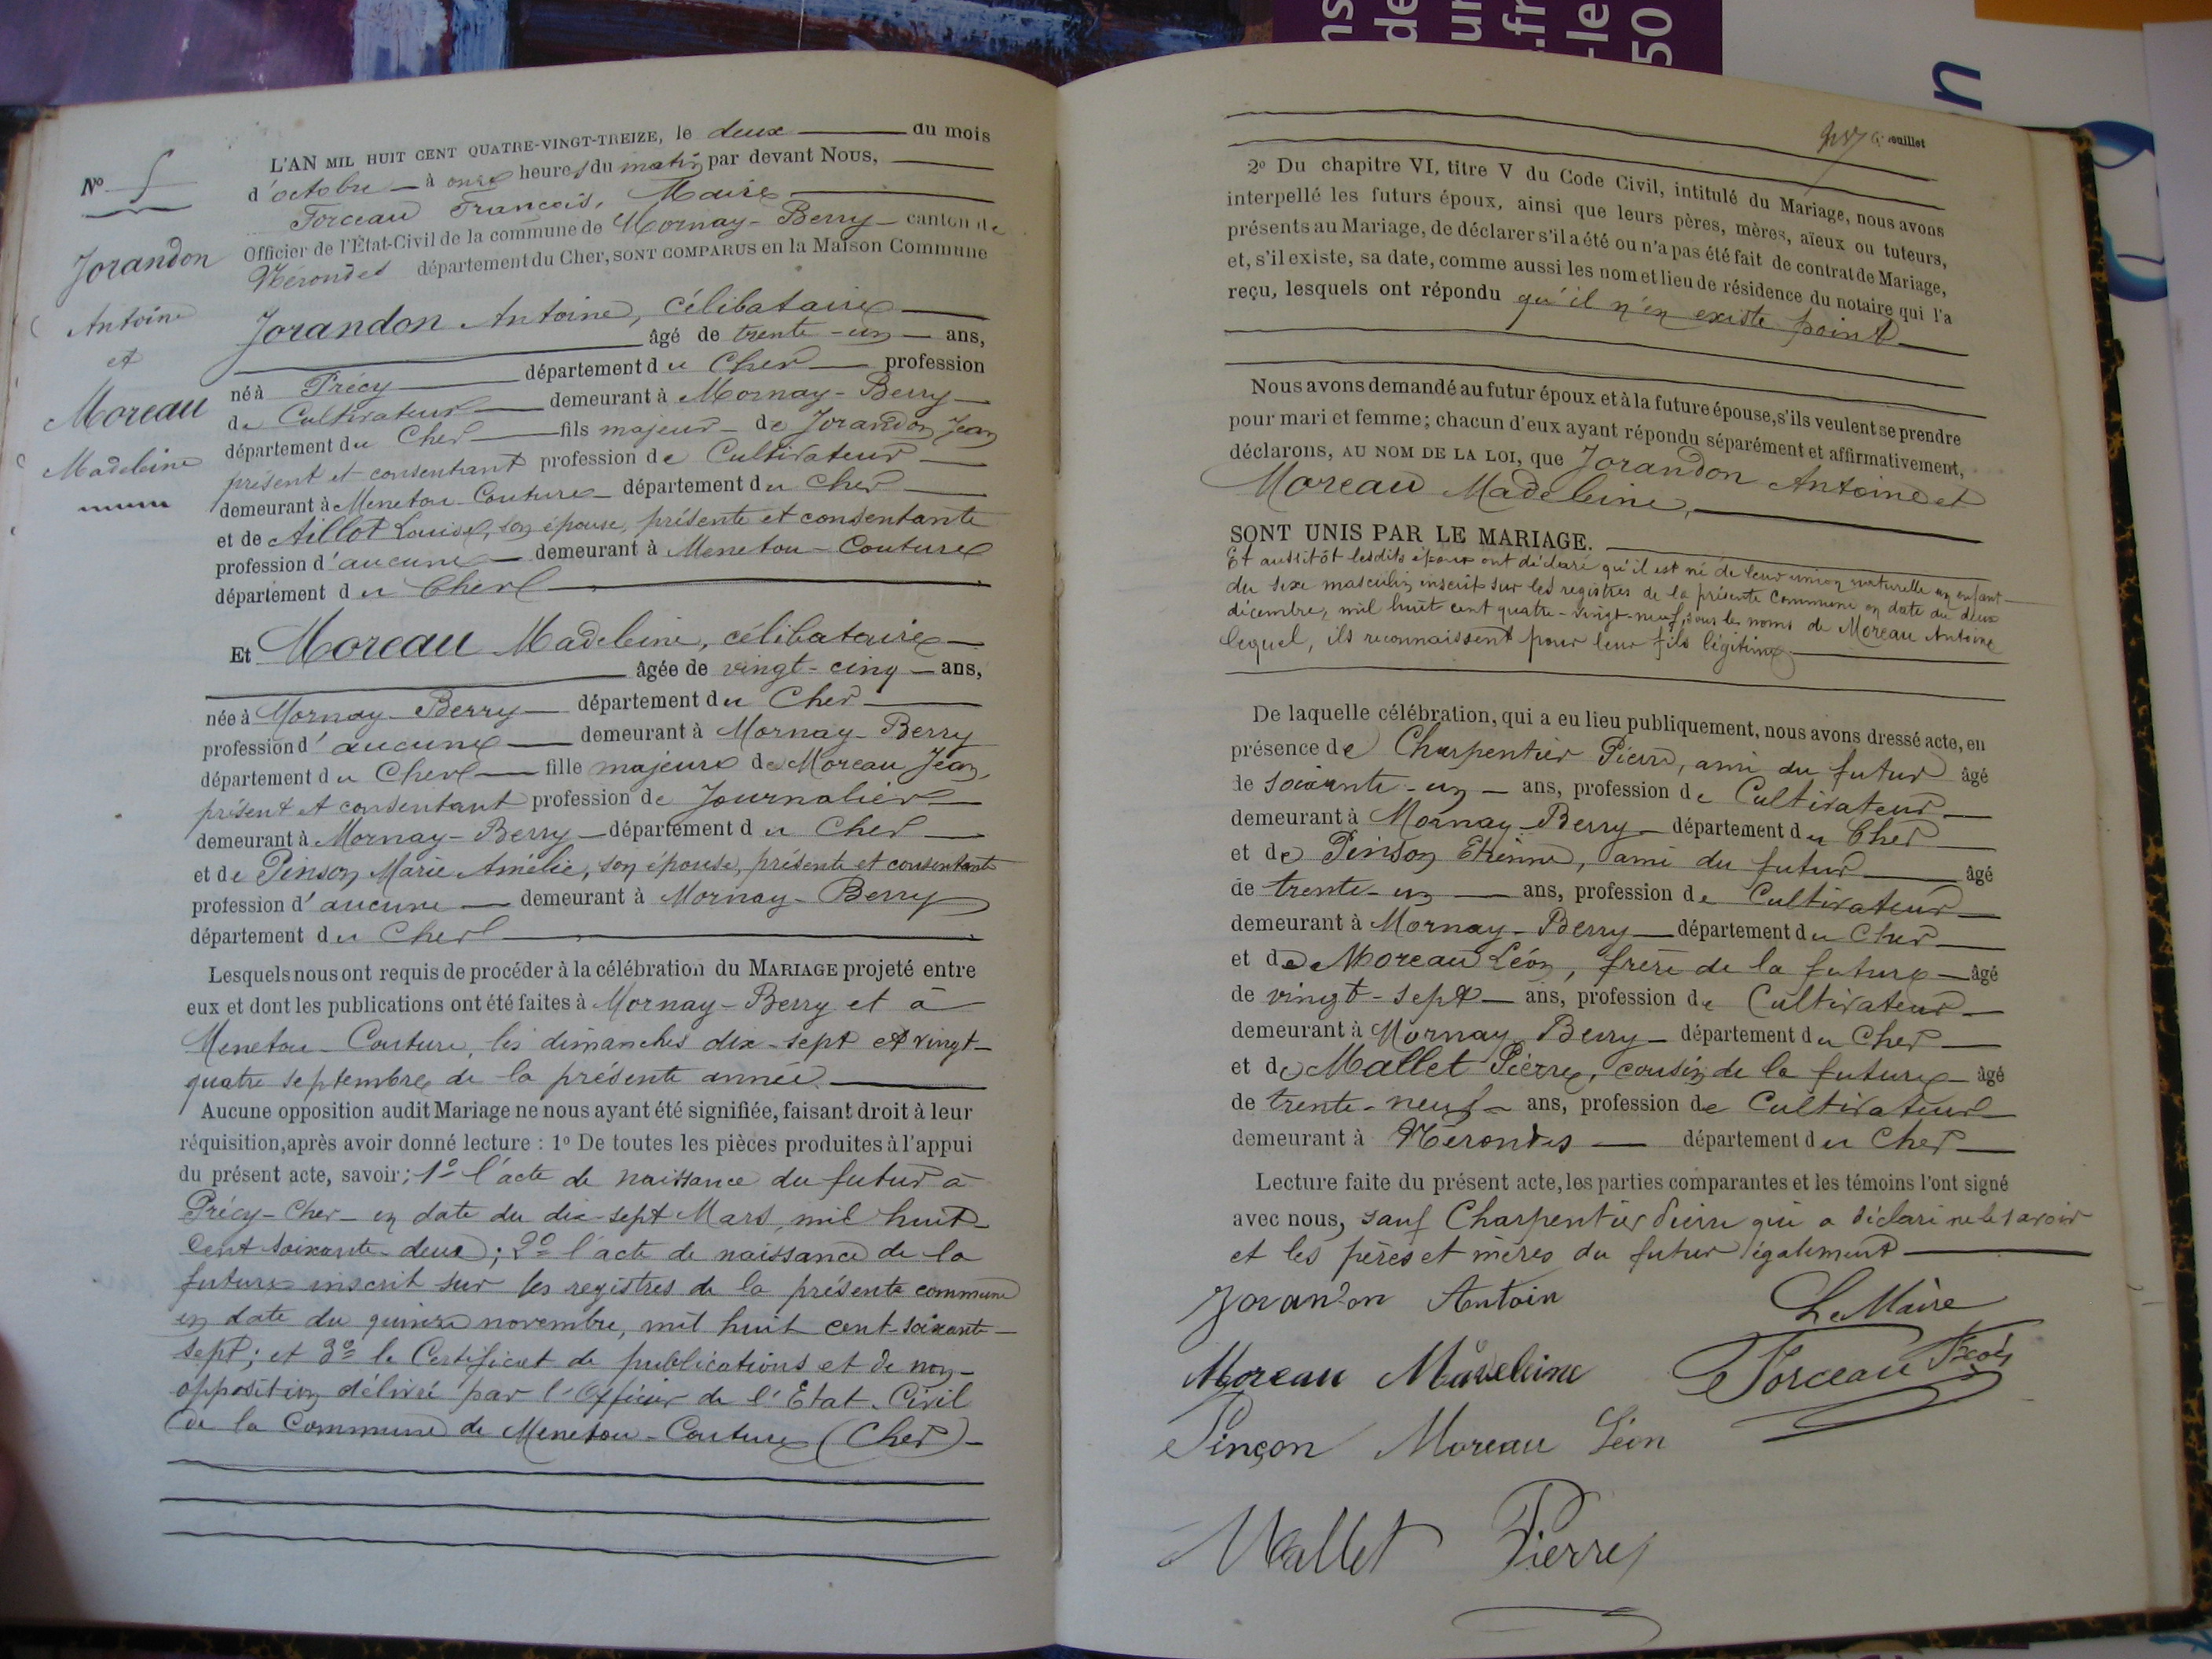 ns
de
.fr
-le
50
n
N°
Jorandon
Antoine
et
Moreau
Madeleine
L'AN MIL HUIT CENT QUATRE-VINGT-TREIZE, le deux du mois
d'octobre à onze heures du matin par devant Nous,
Forceau François, Maire
Officier de l'État-Civil de la commune de Mornay-Berry canton de
Nérondes département du Cher, SONT COMPARUS en la Maison Commune
Jorandon Antoine, célibataire
âgé de trente-un ans,
né à Précy département du Cher profession
de Cultivateur demeurant à Mornay-Berry
département du Cher fils majeur de Jorandon Jean
présent et consentant profession de Cultivateur
demeurant à Menetou-Couture département du Cher
et de Aillot Louise, son épouse, présente et consentante
profession d'aucune demeurant à Menetou-Couture
département du Cher
Et Moreau Madeleine, célibataire
âgée de vingt-cinq ans,
née à Mornay-Berry département du Cher
profession d'aucune demeurant à Mornay-Berry
département du Cher fille majeure de Moreau Jean,
présent et consentant profession de Journalier
demeurant à Mornay-Berry département du Cher
et de Pinson Marie Amélie, son épouse, présente et consentante
profession d'aucune demeurant à Mornay-Berry
département du Cher
Lesquels nous ont requis de procéder à la célébration du MARIAGE projeté entre
eux et dont les publications ont été faites à Mornay-Berry et à
Menetou-Couture, les dimanches dix-sept et vingt-
quatre septembre de la présente année.
Aucune opposition audit Mariage ne nous ayant été signifiée, faisant droit à leur
réquisition, après avoir donné lecture : 1° De toutes les pièces produites à l'appui
du présent acte, savoir : 1° l'acte de naissance du futur à
Précy-Cher-en date du dix-sept Mars, mil huit-
cent-soixante-deux ; 2° l'acte de naissance de la
future inscrit sur les registres de la présente commune
en date du quinze novembre, mil huit cent-soixante-
sept ; et 3° le Certificat de publications et de non-
opposition délivré par l'Officier de l'Etat-Civil
de la Commune de Menetou-Couture (Cher)-
feuillet
2° Du chapitre VI, titre V du Code Civil, intitulé du Mariage, nous avons
interpellé les futurs époux, ainsi que leurs pères, mères, aïeux ou tuteurs,
présents au Mariage, de déclarer s'il a été ou n'a pas été fait de contrat de Mariage,
et, s'il existe, sa date, comme aussi les nom et lieu de résidence du notaire qui l'a
reçu, lesquels ont répondu qu'il n'en existe point
Nous avons demandé au futur époux et à la future épouse, s'ils veulent se prendre
pour mari et femme ; chacun d'eux ayant répondu séparément et affirmativement,
déclarons, AU NOM DE LA LOI, que Jorandon Antoine et
Moreau Madeleine,
SONT UNIS PAR LE MARIAGE.
Et aussitôt lesdits époux ont déclaré qu'il est né de leur union naturelle un enfant
du sexe masculin inscrit sur les registres de la présente Commune en date du deux
décembre, mil huit cent quatre-vingt-neuf, sous les noms de Moreau Antoine
lequel, ils reconnaissent pour leur fils légitime.
De laquelle célébration, qui a eu lieu publiquement, nous avons dressé acte, en
présence de Charpentier Pierre, ami du futur âgé
de soixante-un ans, profession de Cultivateur
demeurant à Mornay-Berry département du Cher
et de Pinson Etienne, ami du futur âgé
de trente-un ans, profession de Cultivateur
demeurant à Mornay-Berry département du Cher
et de Moreau Léon, frère de la future âgé
de vingt-sept ans, profession de Cultivateur
demeurant à Mornay-Berry département du Cher
et de Mallet Pierre, cousin de la future âgé
de trente-neuf ans, profession de Cultivateur
demeurant à Nérondes département du Cher
Lecture faite du présent acte, les parties comparantes et les témoins l'ont signé
avec nous, sauf Charpentier Pierre qui a déclaré ne le savoir
et les pères et mères du futur également
Jorandon Antoin
Le Maire
Moreau Madeleine
Forceau Fçois
Pinçon Moreau Léon
Mallet Pierre